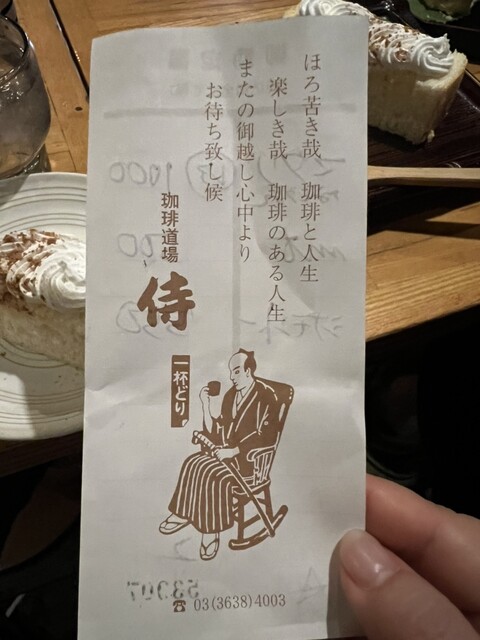 ほろ苦き哉　珈琲と人生
楽しき哉　珈琲のある人生
またの御越し心中より
お待ち致し候
珈琲道場
侍
一杯どり
53907
☎ 03(3638)4003